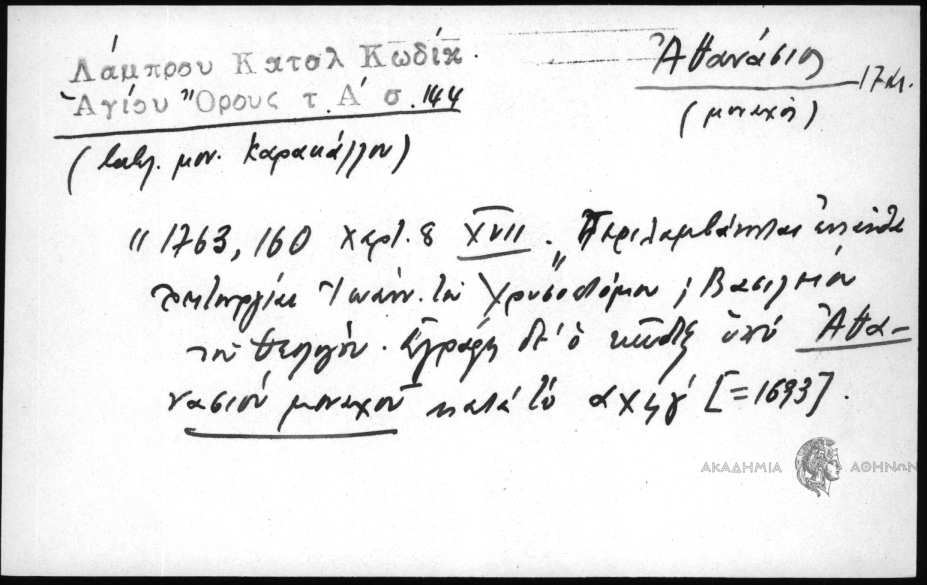 Λάμπρου Καταλ Κωδίκ.
Ἁγίου Ὄρους τ. Α' σ. 144
Ἀθανάσιος 17 αι.
(μοναχός)
(κατάλ. μον. Καρακάλλου)
"1763, 160 χαρτ. 8 XVII. "Περιλαμβάνεται ἐν
Λειτουργίαι Ἰωάνν. τοῦ Χρυσοστόμου, Βασιλείου
τοῦ Θεολόγου. Ἐγράφη δὲ ὁ κῶδιξ ὑπὸ Ἀθα-
νασίου μοναχοῦ κατὰ τὸ αχϟγ [=1693].
ΑΚΑΔΗΜΙΑ ΑΘΗΝΩΝ